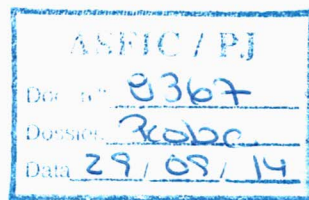 ASFIC / PJ
Doc. nº 9367
Dossier
Data 29 / 09 / 14